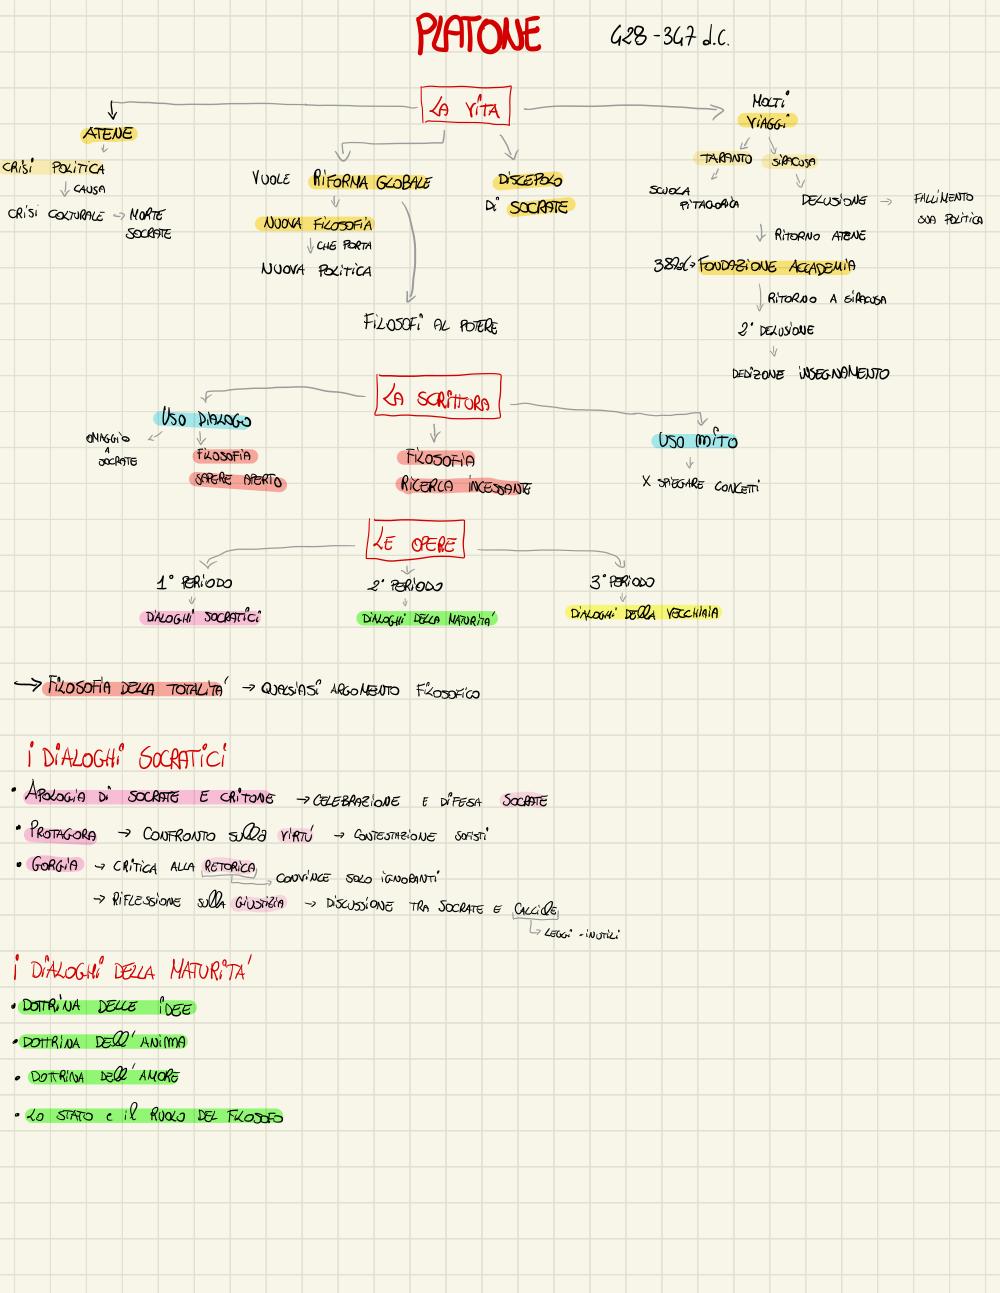 PLATONE
428-347 d.C.
LA VITA
ATENE
CRISI POLITICA
CAUSA
CRISI COLTURALE → MORTE
SOCRATE
VUOLE RIFORMA GLOBALE
NUOVA FILOSOFIA
CHE PORTA
NUOVA POLITICA
FILOSOFI AL POTERE
DISCEPOLO
DI SOCRATE
MOLTI
VIAGGI
TARANTO
SIRACUSA
SCUOLA
PITAGORICA
DELUSIONE → FALLIMENTO
SUA POLITICA
RITORNO ATENE
FONDAZIONE ACCADEMIA
RITORNO A SIRACUSA
2° DELUSIONE
DEDIZONE INSEGNAMENTO
LA SCRITTURA
USO DIALOGO
OMAGGIO
A
SOCRATE
FILOSOFIA
SAPERE APERTO
FILOSOFIA
RICERCA INCESSANTE
USO MITO
X SPIEGARE CONCETTI
LE OPERE
1° PERIODO
DIALOGHI SOCRATICI
2° PERIODO
DIALOGHI DELLA MATURITA'
3° PERIODO
DIALOGHI DELLA VECCHIAIA
→ FILOSOFIA DELLA TOTALITA' → QUALSIASI ARGOMENTO FILOSOFICO
I DIALOGHI SOCRATICI
• APOLOGIA DI SOCRATE E CRITONE → CELEBRAZIONE E DIFESA SOCRATE
• PROTAGORA → CONFRONTO SULLA VIRTÙ → CONTESTAZIONE SOFISTI
• GORGIA → CRITICA ALLA RETORICA
→ CONVINCE SOLO IGNORANTI
→ RIFLESSIONE SULLA GIUSTIZIA → DISCUSSIONE TRA SOCRATE E CALLICLE
→ LEGGI - INUTILI
I DIALOGHI DELLA MATURITA'
• DOTTRINA DELLE IDEE
• DOTTRINA DELL'ANIMA
• DOTTRINA DELL'AMORE
• LO STATO e il RUOLO DEL FILOSOFO